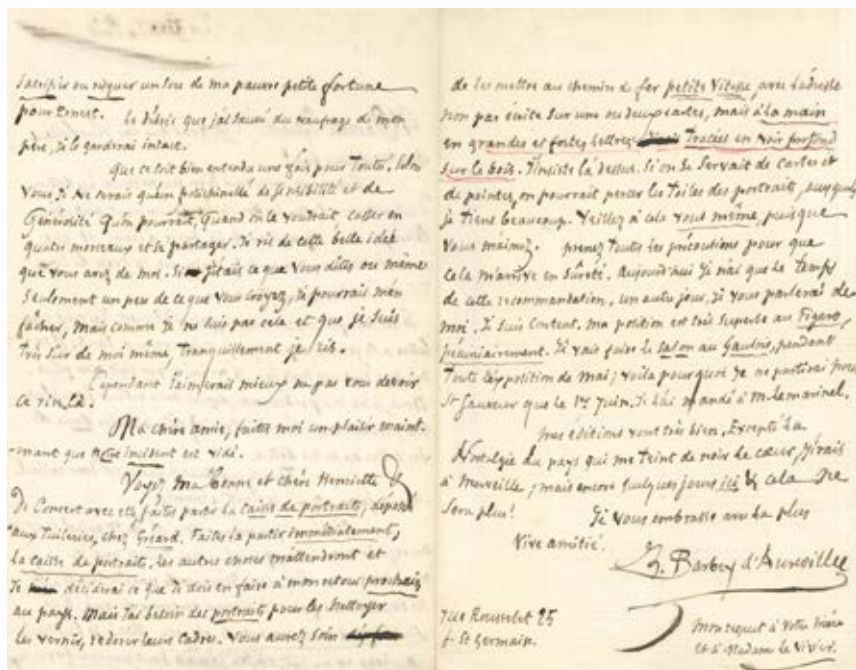 sacrifier ou risquer un sou de ma pauvre petite fortune
pour Ernest. Le débris que j'ai sauvé du naufrage de mon
père, je le garderai intact.
Que ce soit bien entendu une fois pour toutes. Selon
vous, je ne serais qu'un polichinelle de sensibilité et de
Générosité qu'on pourrait, quand on le voudrait casser en
quatre morceaux et se partager. Je ris de cette belle idée
que vous avez de moi. Si j'étais ce que vous dites ou même
seulement un peu de ce que vous croyez, je pourrais m'en
fâcher, mais comme je ne suis pas cela et que je suis
très sûr de moi même, tranquillement je ris.
Cependant j'aimerais mieux ne pas vous devoir
ce rire là.
Ma chère amie, faites moi un plaisir maint-
enant que cet incident est vidé.
Voyez ma bonne et chère Henriette &
De Concert avec elle, faites partir la caisse de portraits, déposée
aux Tuileries, chez Gérard. Faites la partir immédiatement,
la caisse de portraits. Les autres choses m'attendront et
je déciderai ce que je dois en faire à mon retour prochain
au pays. Mais j'ai besoin des portraits pour les nettoyer
les vernir, redorer leurs cadres. Vous aurez soin
de les mettre au chemin de fer petite vitesse, avec l'adresse
non pas écrite sur une ou deux cartes, mais à la main
en grandes et fortes lettres tracées en noir sur fond
sur le bois. J'insiste là dessus. Si on se servait de cartes et
de pointes, on pourrait percer les toiles des portraits, auxquels
je tiens beaucoup. Veillez à cela vous même, puisque
vous m'aimez. prenez toutes les précautions pour que
cela m'arrive en sûreté. Aujourd'hui je n'ai que le temps
de cette recommandation. Un autre jour, je vous parlerai de
moi. Je suis content. Ma position est très superbe au Figaro,
pécuniairement. Je vais faire le Salon au Gaulois, pendant
toute l'exposition de mai; voilà pourquoi je ne partirai pour
St Sauveur que le 1er Juin. Je l'ai mandé à M. Lemarinel.
Mes éditions vont très bien. Excepté la
Nostalgie du pays qui me teint de noir le cœur, j'irais
à merveille; mais encore quelques jours ici & cela ne
sera plus! Je vous embrasse avec la plus
vive amitié.
J. Barbey d'Aurevilly
rue Rousselet 25
f. St Germain.
Mon respect à votre mère
et à Madame le Vivier.